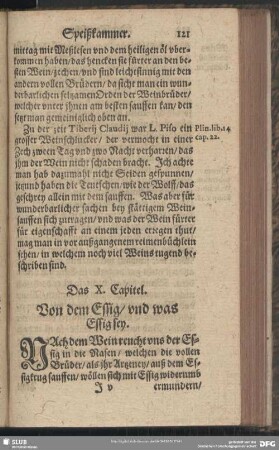 Speißkammer. 121
mittag mit Meßlesen vnd dem heiligen öl vber-
kommen haben/ das hencken sie fürter an den be-
sten Wein/ zechen/ vnd sind leichtsinnig mit den
andern vollen Brüdern/ da sicht man ein wun-
derbarlichen seltzamen Orden der Weinbrüder/
welcher vnter jhnen am besten sauffen kan/ den
setzt man gemeiniglich oben an.
Zu der zeit Tiberij Claudij war L. Piso ein
grosser Weinschlucker/ der vermocht in einer
Zech zween Tag vnd zwo Nacht verharren/ das
jhm der Wein nicht schaden brachte. Ich achte
man hab dazumahl nicht Seiden gespunnen/
jetzund haben die Teutschen/ wie der Wolff/ das
geschrey allein mit dem sauffen. Was aber für
wunderbarlicher sachen bey stättigem Wein-
sauffen sich zutragen/ vnd was der Wein fürter
für eigenschafft an einem jeden erregen thut/
mag man in vor außgangenem reimenbüchlein
sehen/ in welchem noch viel Weins tugend be-
schrieben sind.
Plin. lib. 14
cap. 22.
Das X. Capitel.
Von dem Essig/ vnd was
Essig sey.
NAch dem Wein reucht vns der Es-
sig in die Nasen/ welchen die vollen
Brüder/ als jhr Artzeney/ auß dem Es-
sigkrug sauffen/ wöllen sich mit Essig widerumb
J v ermundern/
SLUB